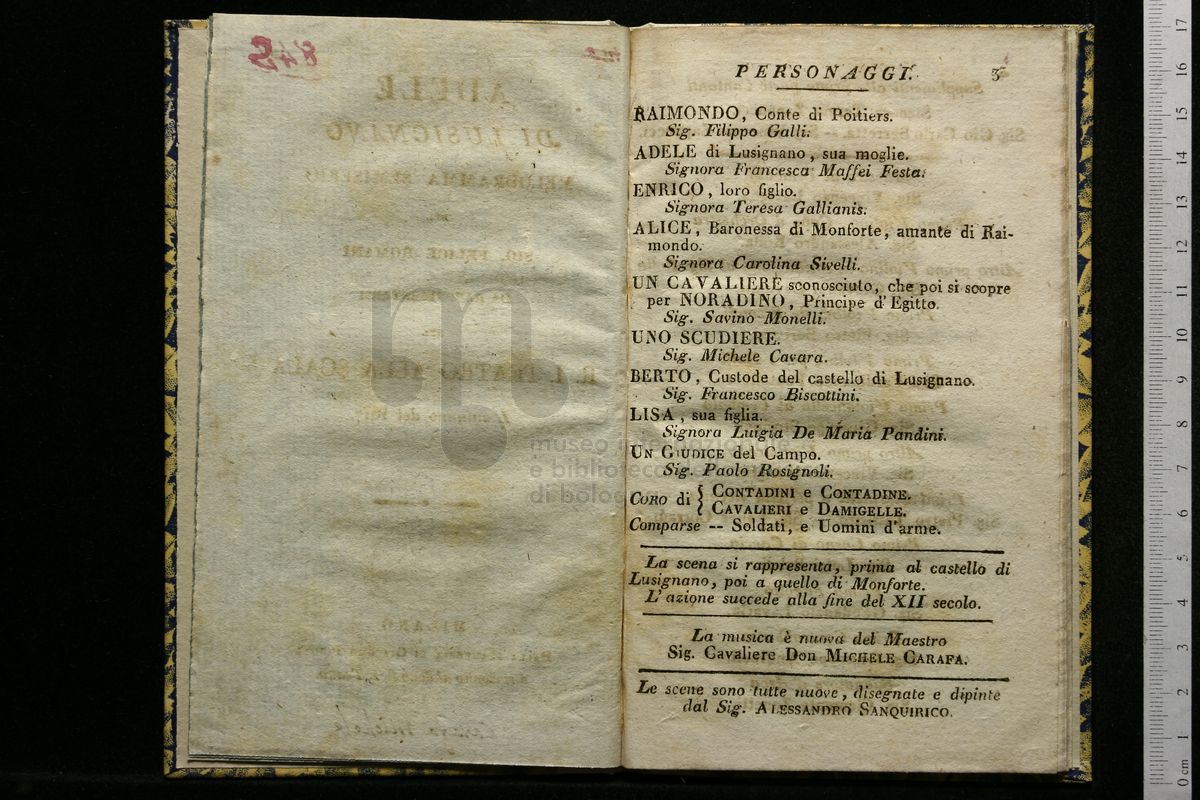 845
PERSONAGGI. 3
RAIMONDO, Conte di Poitiers.
Sig. Filippo Galli.
ADELE di Lusignano, sua moglie.
Signora Francesca Maffei Festa.
ENRICO, loro figlio.
Signora Teresa Gallianis.
ALICE, Baronessa di Monforte, amante di Rai-
mondo.
Signora Carolina Sivelli.
UN CAVALIERE sconosciuto, che poi si scopre
per NORADINO, Principe d'Egitto.
Sig. Savino Monelli.
UNO SCUDIERE.
Sig. Michele Cavara.
BERTO, Custode del castello di Lusignano.
Sig. Francesco Biscottini.
LISA, sua figlia.
Signora Luigia De Maria Pandini.
UN GIUDICE del Campo.
Sig. Paolo Rosignoli.
CORO di { CONTADINI e CONTADINE.
CAVALIERI e DAMIGELLE.
Comparse -- Soldati, e Uomini d'arme.
La scena si rappresenta, prima al castello di
Lusignano, poi a quello di Monforte.
L'azione succede alla fine del XII secolo.
La musica è nuova del Maestro
Sig. Cavaliere Don MICHELE CARAFA.
Le scene sono tutte nuove, disegnate e dipinte
dal Sig. ALESSANDRO SANQUIRICO.
museo internazionale
e biblioteca
di bolog
ADELE
DI LUSIGNANO
R. TEATRO ALLA SCALA
0 cm 1 2 3 4 5 6 7 8 9 10 11 12 13 14 15 16 17